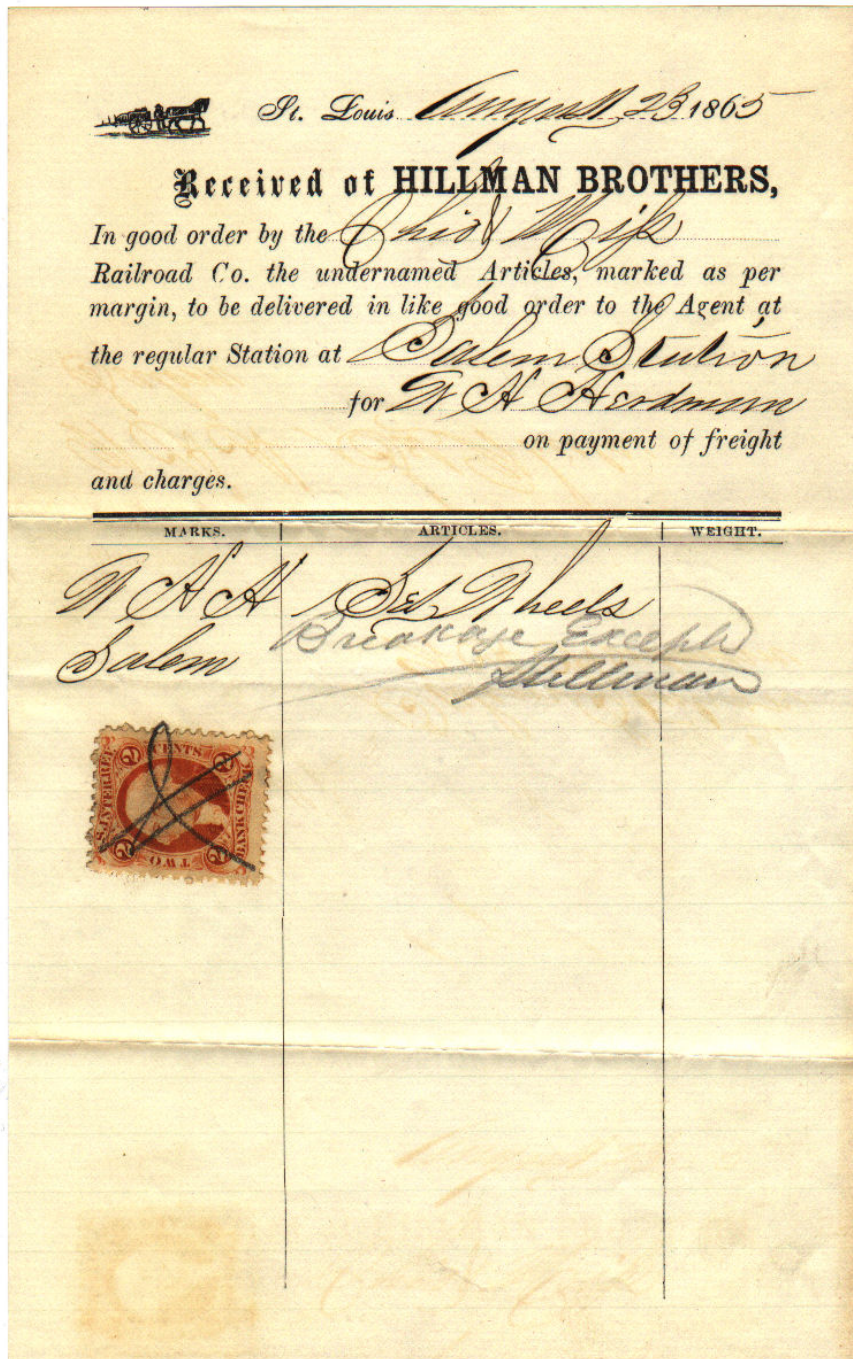 St. Louis August 23 1865
Received of HILLMAN BROTHERS,
In good order by the Ohio & Miss
Railroad Co. the undernamed Articles, marked as per
margin, to be delivered in like good order to the Agent at
the regular Station at Salem Station
for W H Herdman
on payment of freight
and charges.
MARKS. ARTICLES. WEIGHT.
W H H 1 Set Wheels
Salem Breakage Excepted
2 CENTS 2
S. INTER. REV.
BANK CHECK
2 TWO 2